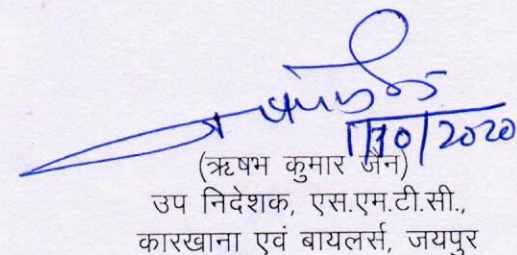 1/10/2020
(ऋषभ कुमार जैन)
उप निदेशक, एस.एम.टी.सी.,
कारखाना एवं बायलर्स, जयपुर